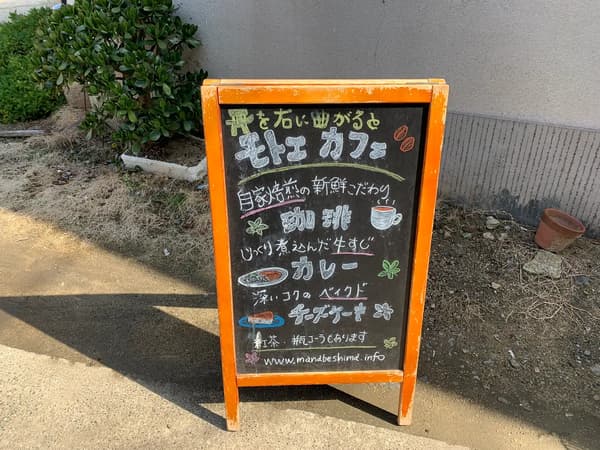 舟を右に曲がると
モトエ カフェ
自家焙煎の新鮮こだわり
珈琲
じっくり煮込んだ牛すじ
カレー
深いコクのベイクド
チーズケーキ
紅茶・瓶コーラもあります
www.manabeshima.info